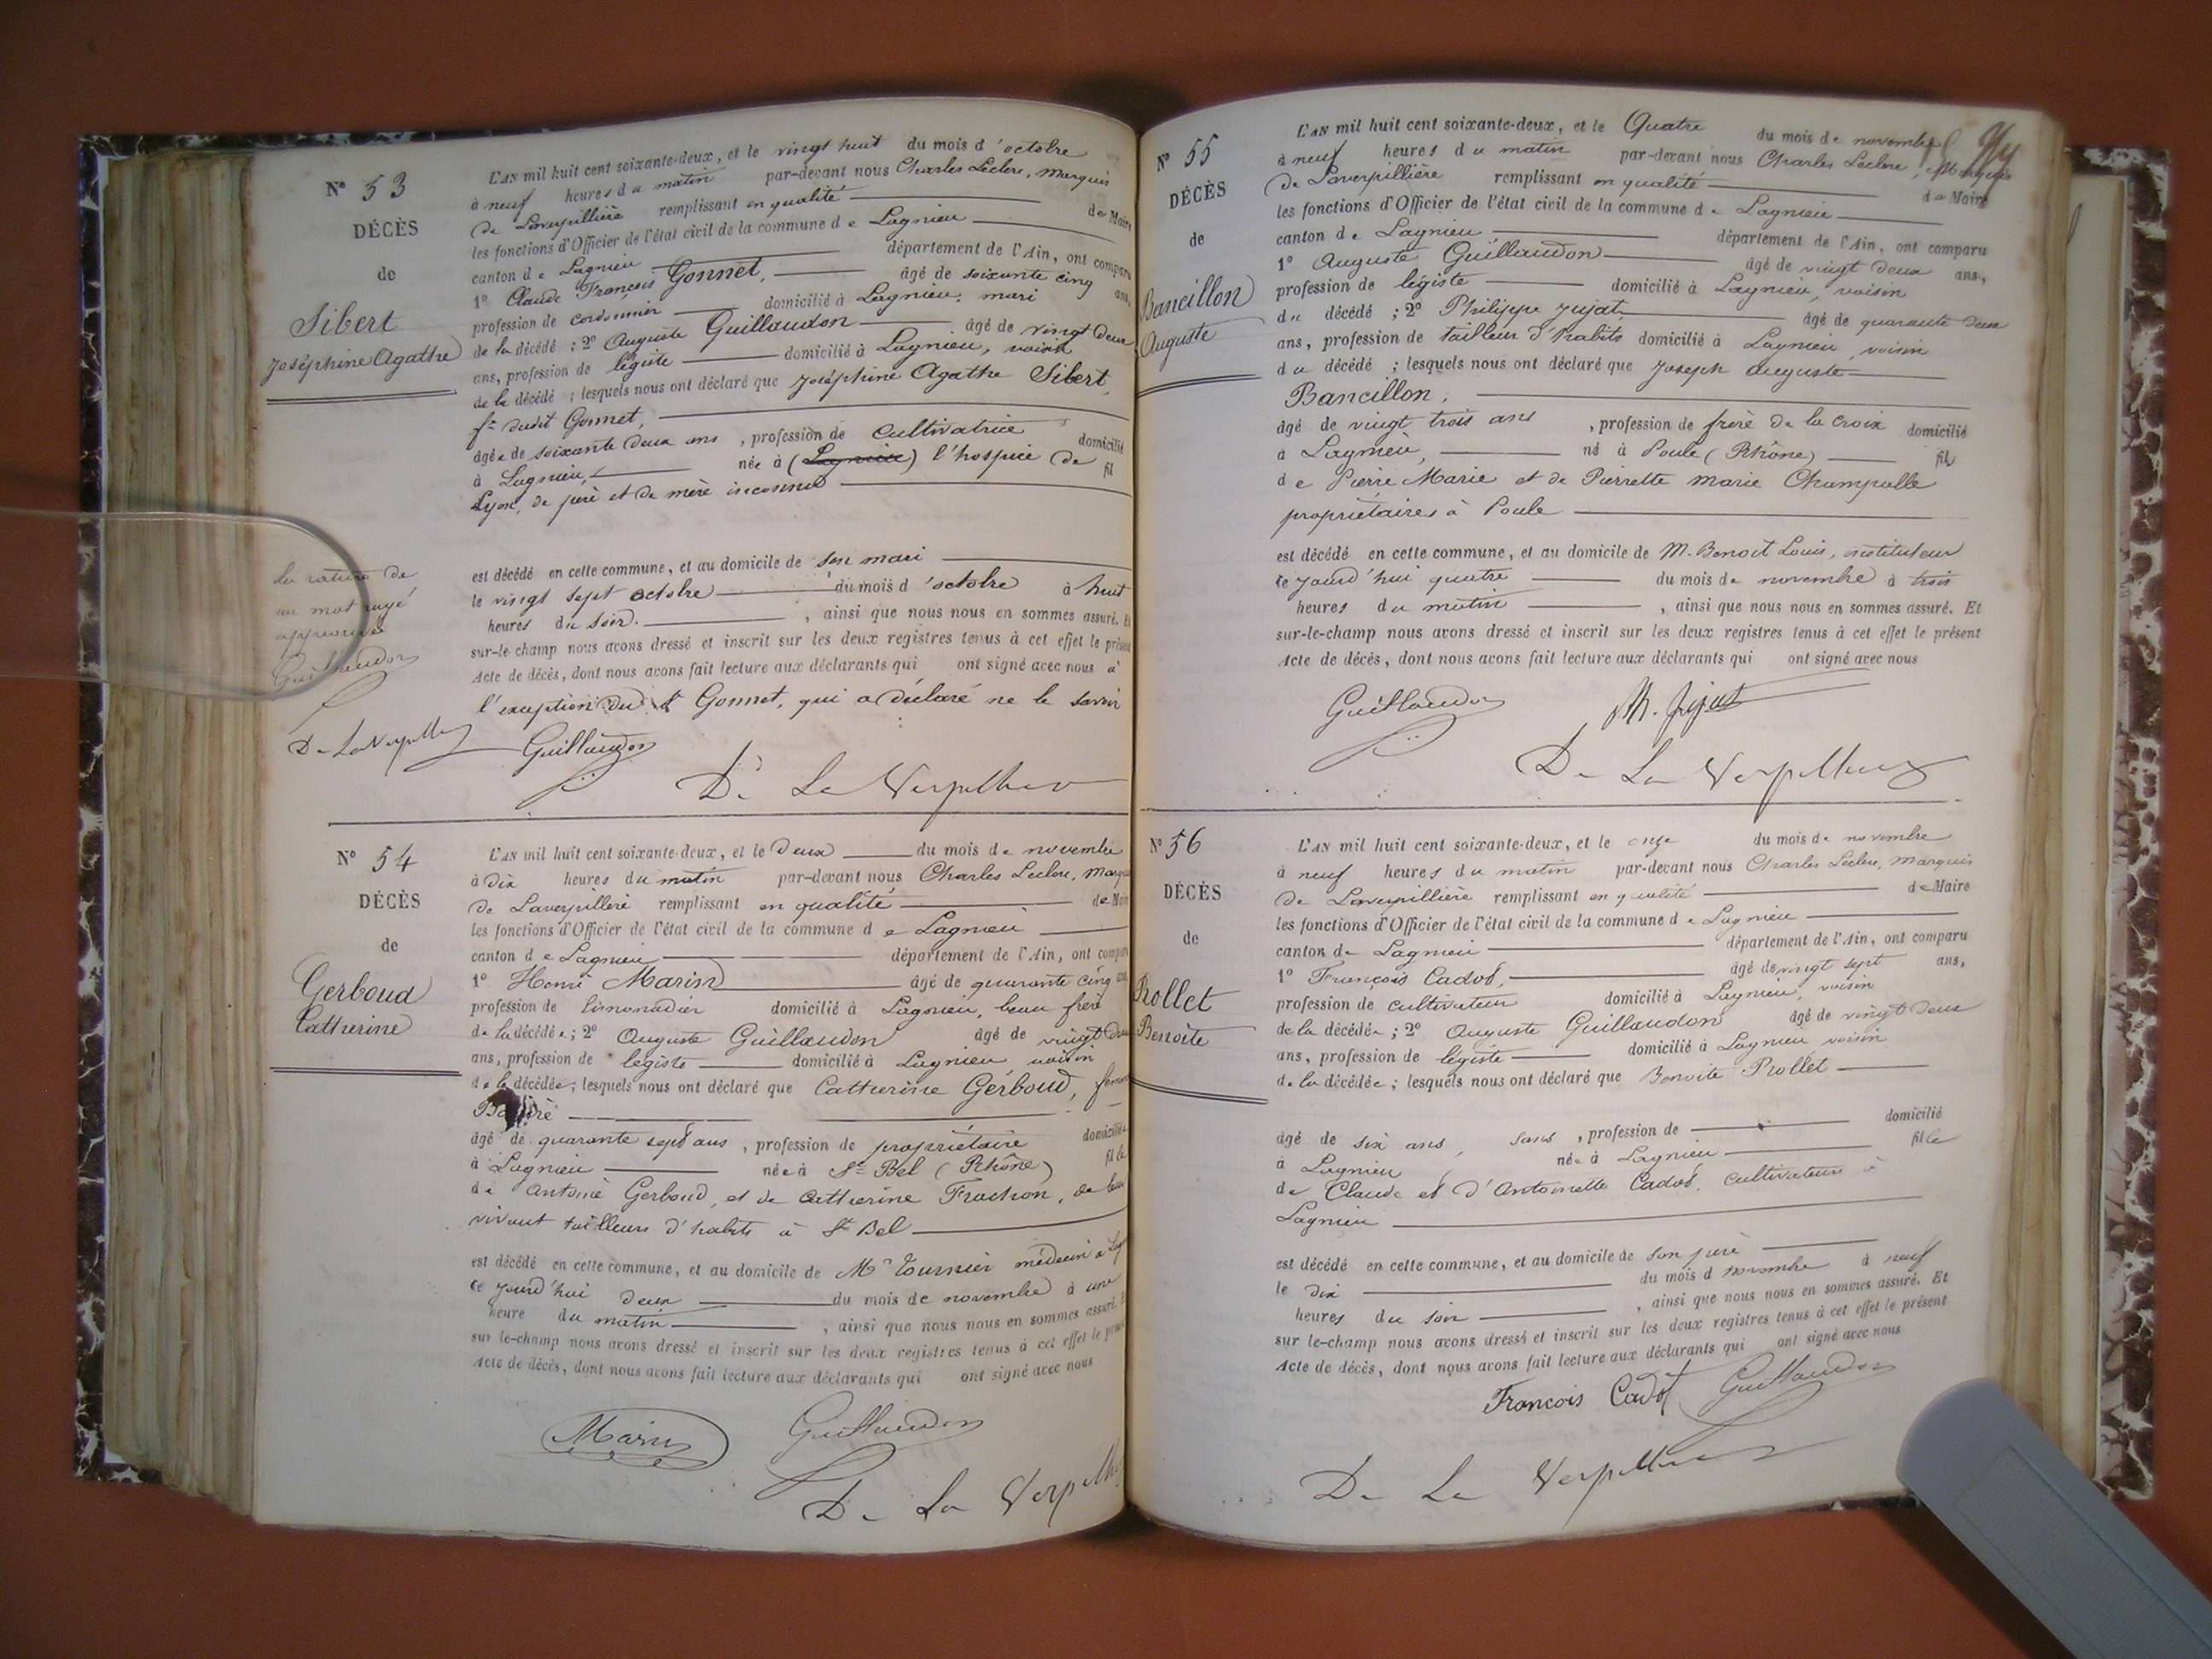 N° 53
DÉCÈS
de
Sibert
Joséphine Agathe
L'AN mil huit cent soixante-deux, et le vingt huit du mois d'octobre
à neuf heures du matin par-devant nous Charles Leclerc, Marquis
de Laverpillière remplissant en qualité de Maire
les fonctions d'Officier de l'état civil de la commune de Lagnieu
canton de Lagnieu département de l'Ain, ont comparu
1° Claude François Gonnet, âgé de soixante cinq ans,
profession de cordonnier domicilié à Lagnieu, mari
de la décédé ; 2° Auguste Guillaudon âgé de vingt deux
ans, profession de légiste domicilié à Lagnieu, voisin
de la décédé ; lesquels nous ont déclaré que Joséphine Agathe Sibert,
fe dudit Gonnet,
âgée de soixante deux ans, profession de cultivatrice domicilié
à Lagnieu, née à (Lagnieu) l'hospice de fil
Lyon, de père et de mère inconnus
est décédé en cette commune, et au domicile de son mari
le vingt sept octobre du mois d'octobre à huit
heures du soir. , ainsi que nous nous en sommes assuré. Et
sur-le champ nous avons dressé et inscrit sur les deux registres tenus à cet effet le présent
Acte de décès, dont nous avons fait lecture aux déclarants qui ont signé avec nous à
l'exception du Gonnet, qui a déclaré ne le savoir
La rature de
un mot rayé
approuvée
Guillaudon
De La Verpilliere Guillaudon
De La Verpilliere
N° 54
DÉCÈS
de
Gerboud
Catherine
L'AN mil huit cent soixante-deux, et le deux du mois de novembre
à dix heures du matin par-devant nous Charles Leclerc, Marquis
de Laverpillere remplissant en qualité de Maire
les fonctions d'Officier de l'état civil de la commune de Lagnieu
canton de Lagnieu département de l'Ain, ont comparu
1° Henri Marin âgé de quarante cinq ans
profession de limonadier domicilié à Lagnieu, beau frère
de la décédée ; 2° Auguste Guillaudon âgé de vingt deux
ans, profession de légiste domicilié à Lagnieu voisin
de la décédée ; lesquels nous ont déclaré que Catherine Gerboud, femme
âgé de quarante sept ans, profession de propriétaire domiciliée
à Lagnieu née à St Bel (Rhône) fille
de Antoine Gerboud, et de Catherine Frachon, de leur
vivant tailleurs d'habits à St Bel
est décédé en cette commune, et au domicile de Mr Tournier médecin à
ce jourd'hui deux du mois de novembre à une
heure du matin , ainsi que nous nous en sommes assuré. Et
sur le-champ nous avons dressé et inscrit sur les deux registres tenus à cet effet le présent
Acte de décès, dont nous avons fait lecture aux déclarants qui ont signé avec nous
Marin Guillaudon
De La Verpilliere
N° 55
DÉCÈS
de
Bancillon
Auguste
L'AN mil huit cent soixante-deux, et le Quatre du mois de novembre
à neuf heures du matin par-devant nous Charles Leclerc, Marquis
de Laverpillière remplissant en qualité de Maire
les fonctions d'Officier de l'état civil de la commune de Lagnieu
canton de Lagnieu département de l'Ain, ont comparu
1° Auguste Guillaudon âgé de vingt deux ans,
profession de légiste domicilié à Lagnieu, voisin
du décédé ; 2° Philippe Jujat, âgé de quarante deux
ans, profession de tailleur d'habits domicilié à Lagnieu, voisin
du décédé ; lesquels nous ont déclaré que Joseph Auguste
Bancillon,
âgé de vingt trois ans, profession de frère de la croix domicilié
à Lagnieu, né à Poule (Rhône) fils
de Pierre Marie et de Pierrette Marie Champalle
propriétaires à Poule
est décédé en cette commune, et au domicile de M. Benoit Louis, instituteur
ce jourd'hui quatre du mois de novembre à trois
heures du matin , ainsi que nous nous en sommes assuré. Et
sur-le-champ nous avons dressé et inscrit sur les deux registres tenus à cet effet le présent
Acte de décès, dont nous avons fait lecture aux déclarants qui ont signé avec nous
Guillaudon Jujat
De La Verpilliere
N° 56
DÉCÈS
de
Rollet
Benoite
L'AN mil huit cent soixante-deux, et le onze du mois de novembre
à neuf heures du matin par-devant nous Charles Leclerc, Marquis
de Laverpillière remplissant en qualité de Maire
les fonctions d'Officier de l'état civil de la commune de Lagnieu
canton de Lagnieu département de l'Ain, ont comparu
1° François Cadot, âgé de vingt sept ans,
profession de cultivateur domicilié à Lagnieu, voisin
de la décédée ; 2° Auguste Guillaudon âgé de vingt deux
ans, profession de légiste domicilié à Lagnieu voisin
de la décédée ; lesquels nous ont déclaré que Benoite Rollet
âgé de six ans, sans, profession de domicilié
à Lagnieu née à Lagnieu fille
de Claude et d'Antoinette Cadot, cultivateurs à
Lagnieu
est décédé en cette commune, et au domicile de son père
le dix du mois d novembre à neuf
heures du soir , ainsi que nous nous en sommes assuré. Et
sur le-champ nous avons dressé et inscrit sur les deux registres tenus à cet effet le présent
Acte de décès, dont nous avons fait lecture aux déclarants qui ont signé avec nous
Francois Cadot Guillaudon
De La Verpilliere